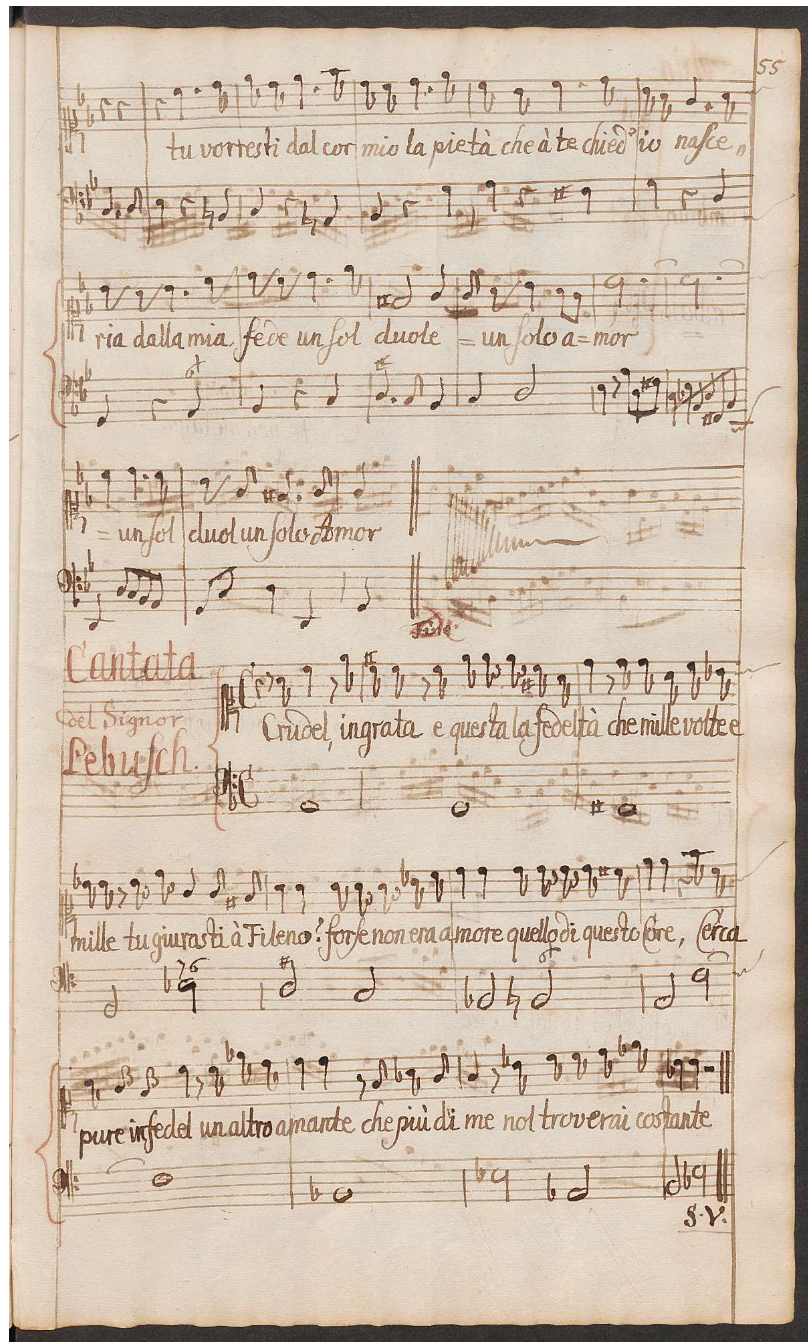 55
tu vorresti dal cor mio la pietà che à te chied'io nasce,,
ria dalla mia fede un sol duole = un solo a=mor
= un sol duol un solo Amor
Fine.
Cantata
del Signor
Pebusch.
Crudel, ingrata e questa la fedeltà che mille volte e
mille tu giurasti à Fileno? forse non era amore quello di questo Core, Cerca
pure infedel un altro amante che più di me nol troverai costante
S. V.